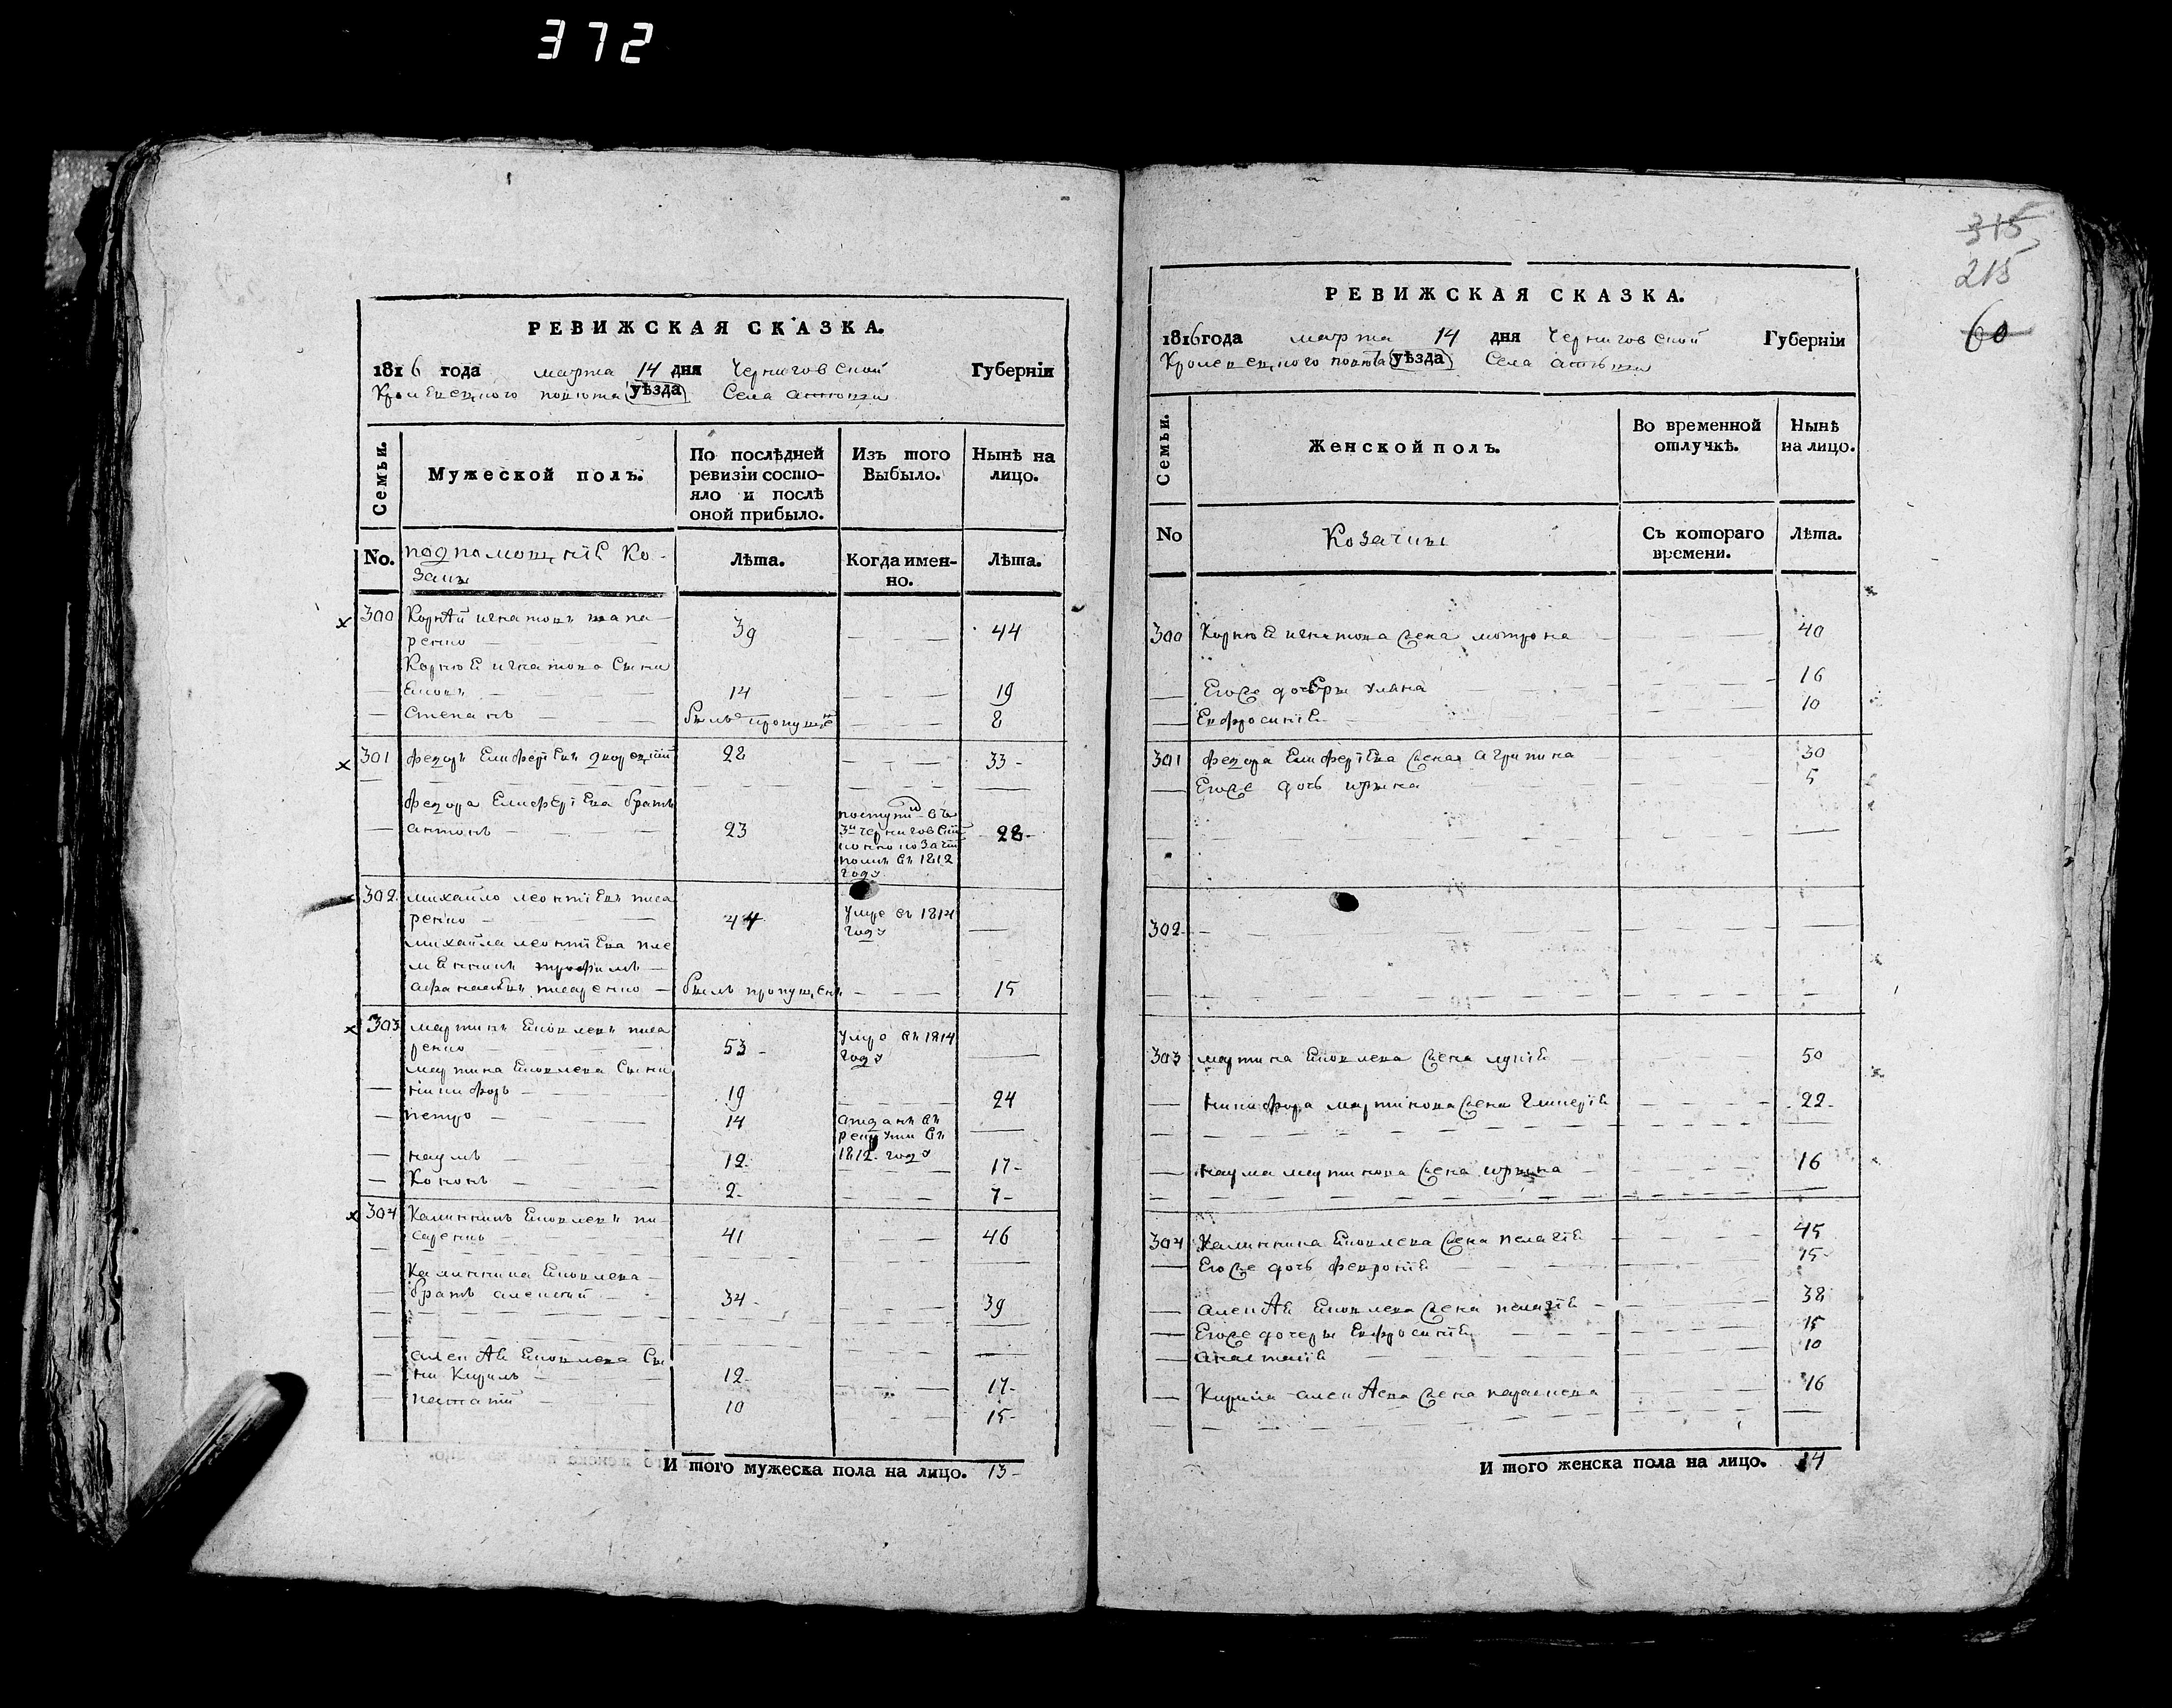 372
РЕВИЖСКАЯ СКАЗКА.
1816 года марта 14 дня Черниговской Губернїи
Кролевецкого повѣта (уѣзда) Села
Семьи.
Мужеской полъ.
По послѣдней
ревизїи состо-
яло и послѣ
оной прибыло.
Изъ того
Выбыло.
Нынѣ на
лицо.
No.
подпомощнїе Ко-
заки
Лѣта.
Когда имен-
но.
Лѣта.
300 Корнѣй игнатовъ
ренко 39 44
Корнѣя игнатова сыни
14 19
степанъ былъ пропущен 8
301 федоръ Елиферїевъ 28 33
федора Елиферїева братъ
антонъ 23 28
поступи в
3й черниговский
козачий
полкъ въ 1812
году
302 михайло леонтїевъ писа
ренко 44
умре въ 1814
году
михайла леонтїева пле
мѣнникъ трофимъ
афанасїевъ писаренко былъ пропущенъ 15
303 мартинъ Яковлевъ писа
ренко 53
умре въ 1814
году
мартина Яковлева сыни
никифоръ 19 24
петро 14
отданъ въ
рекруты въ
1812 году
наумъ 12 17
Кононъ 2 7
304 Калинникъ Яковлевъ пи
саренко 41 46
Калинника Яковлева
братъ алексѣй 34 39
алексѣя Яковлева сы
ни Кирилъ 12 17
10 15
И того мужеска пола на лицо. 13
315
215
60
РЕВИЖСКАЯ СКАЗКА.
1816 года марта 14 дня Черниговской Губернїи
Кролевецкого повѣта (уѣзда) Села
Семьи.
Женской полъ.
Во временной
отлучкѣ.
Нынѣ
на лицо.
No
Козачки
Съ котораго
времени.
Лѣта.
300 Корнѣя игнатова жена мотрона 40
Егоже дочери уляна 16
Ефросинїя 10
301 федора Елиферїева жена агрипина 30
Егоже дочь ирина 5
302
303 мартина Яковлева жена 50
никифора мартинова жена гликерїя 22
наума мартинова жена ирина 16
304 Калинника Яковлева жена пелагїя 45
Егоже дочь феврониїя 15
алексѣя Яковлева жена пелагїя 38
Егоже дочери Ефросинїя 15
анастасїя 10
Кирила алексѣева жена параскева 16
И того женска пола на лицо. 14